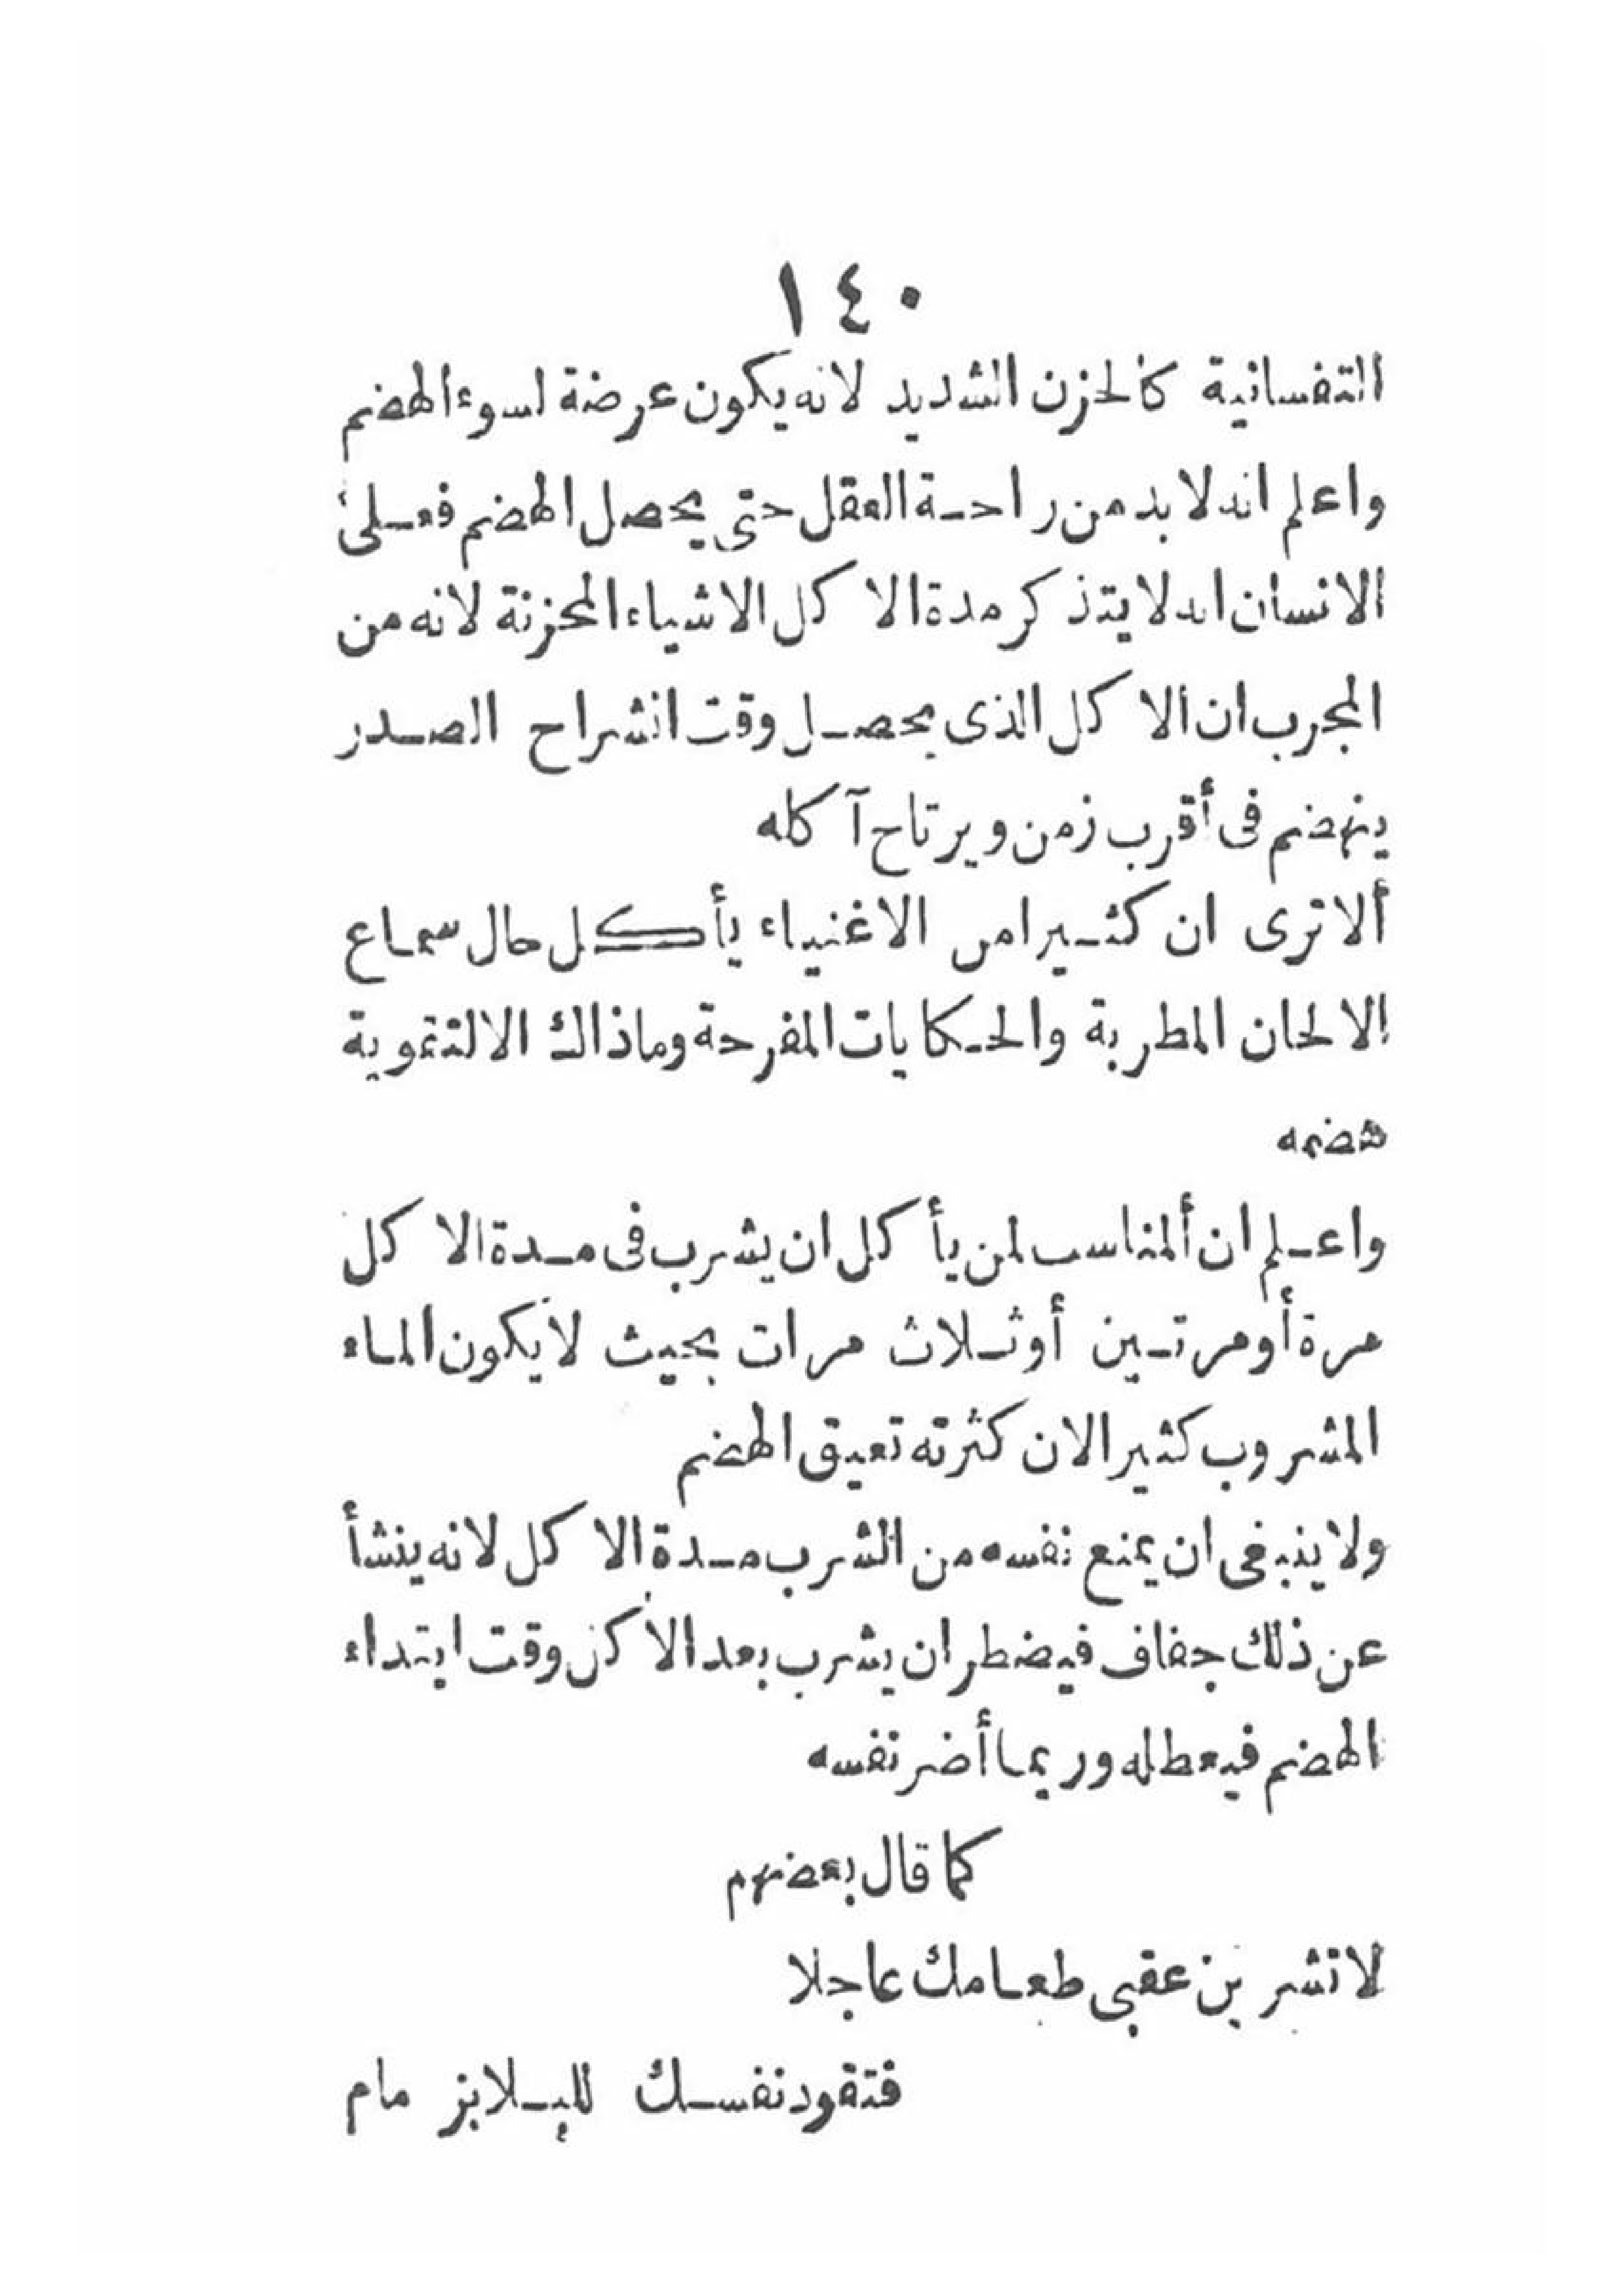 ١٤٠
التفسانية كالحزن الشديد لانه يكون عرضة لسوء الهضم
واعلم انه لا بد من راحة العقل حتى يحصل الهضم فعلى
الانسان انه لا يتذكر مدة الاكل الاشياء المحزنة لانه من
المجرب ان الاكل الذى يحصل وقت انشراح الصدر
ينهضم فى أقرب زمن ويرتاح آكله
ألا ترى ان كثيرا من الاغنياء يأكل حال سماع
الالحان المطربة والحكايات المفرحة وماذاك الا لتقوية
هضمه
واعلم ان المناسب لمن يأكل ان يشرب فى مدة الاكل
مرة أو مرتين أو ثلاث مرات بحيث لا يكون الماء
المشروب كثيرا لان كثرته تعيق الهضم
ولا ينبغى ان يمنع نفسه من الشرب مدة الاكل لانه ينشأ
عن ذلك جفاف فيضطر ان يشرب بعد الاكل وقت ابتداء
الهضم فيعطله وربما أضر نفسه
كما قال بعضهم
لا تشربن عقبى طعامك عاجلا
فتقود نفسك للبلا بزمام